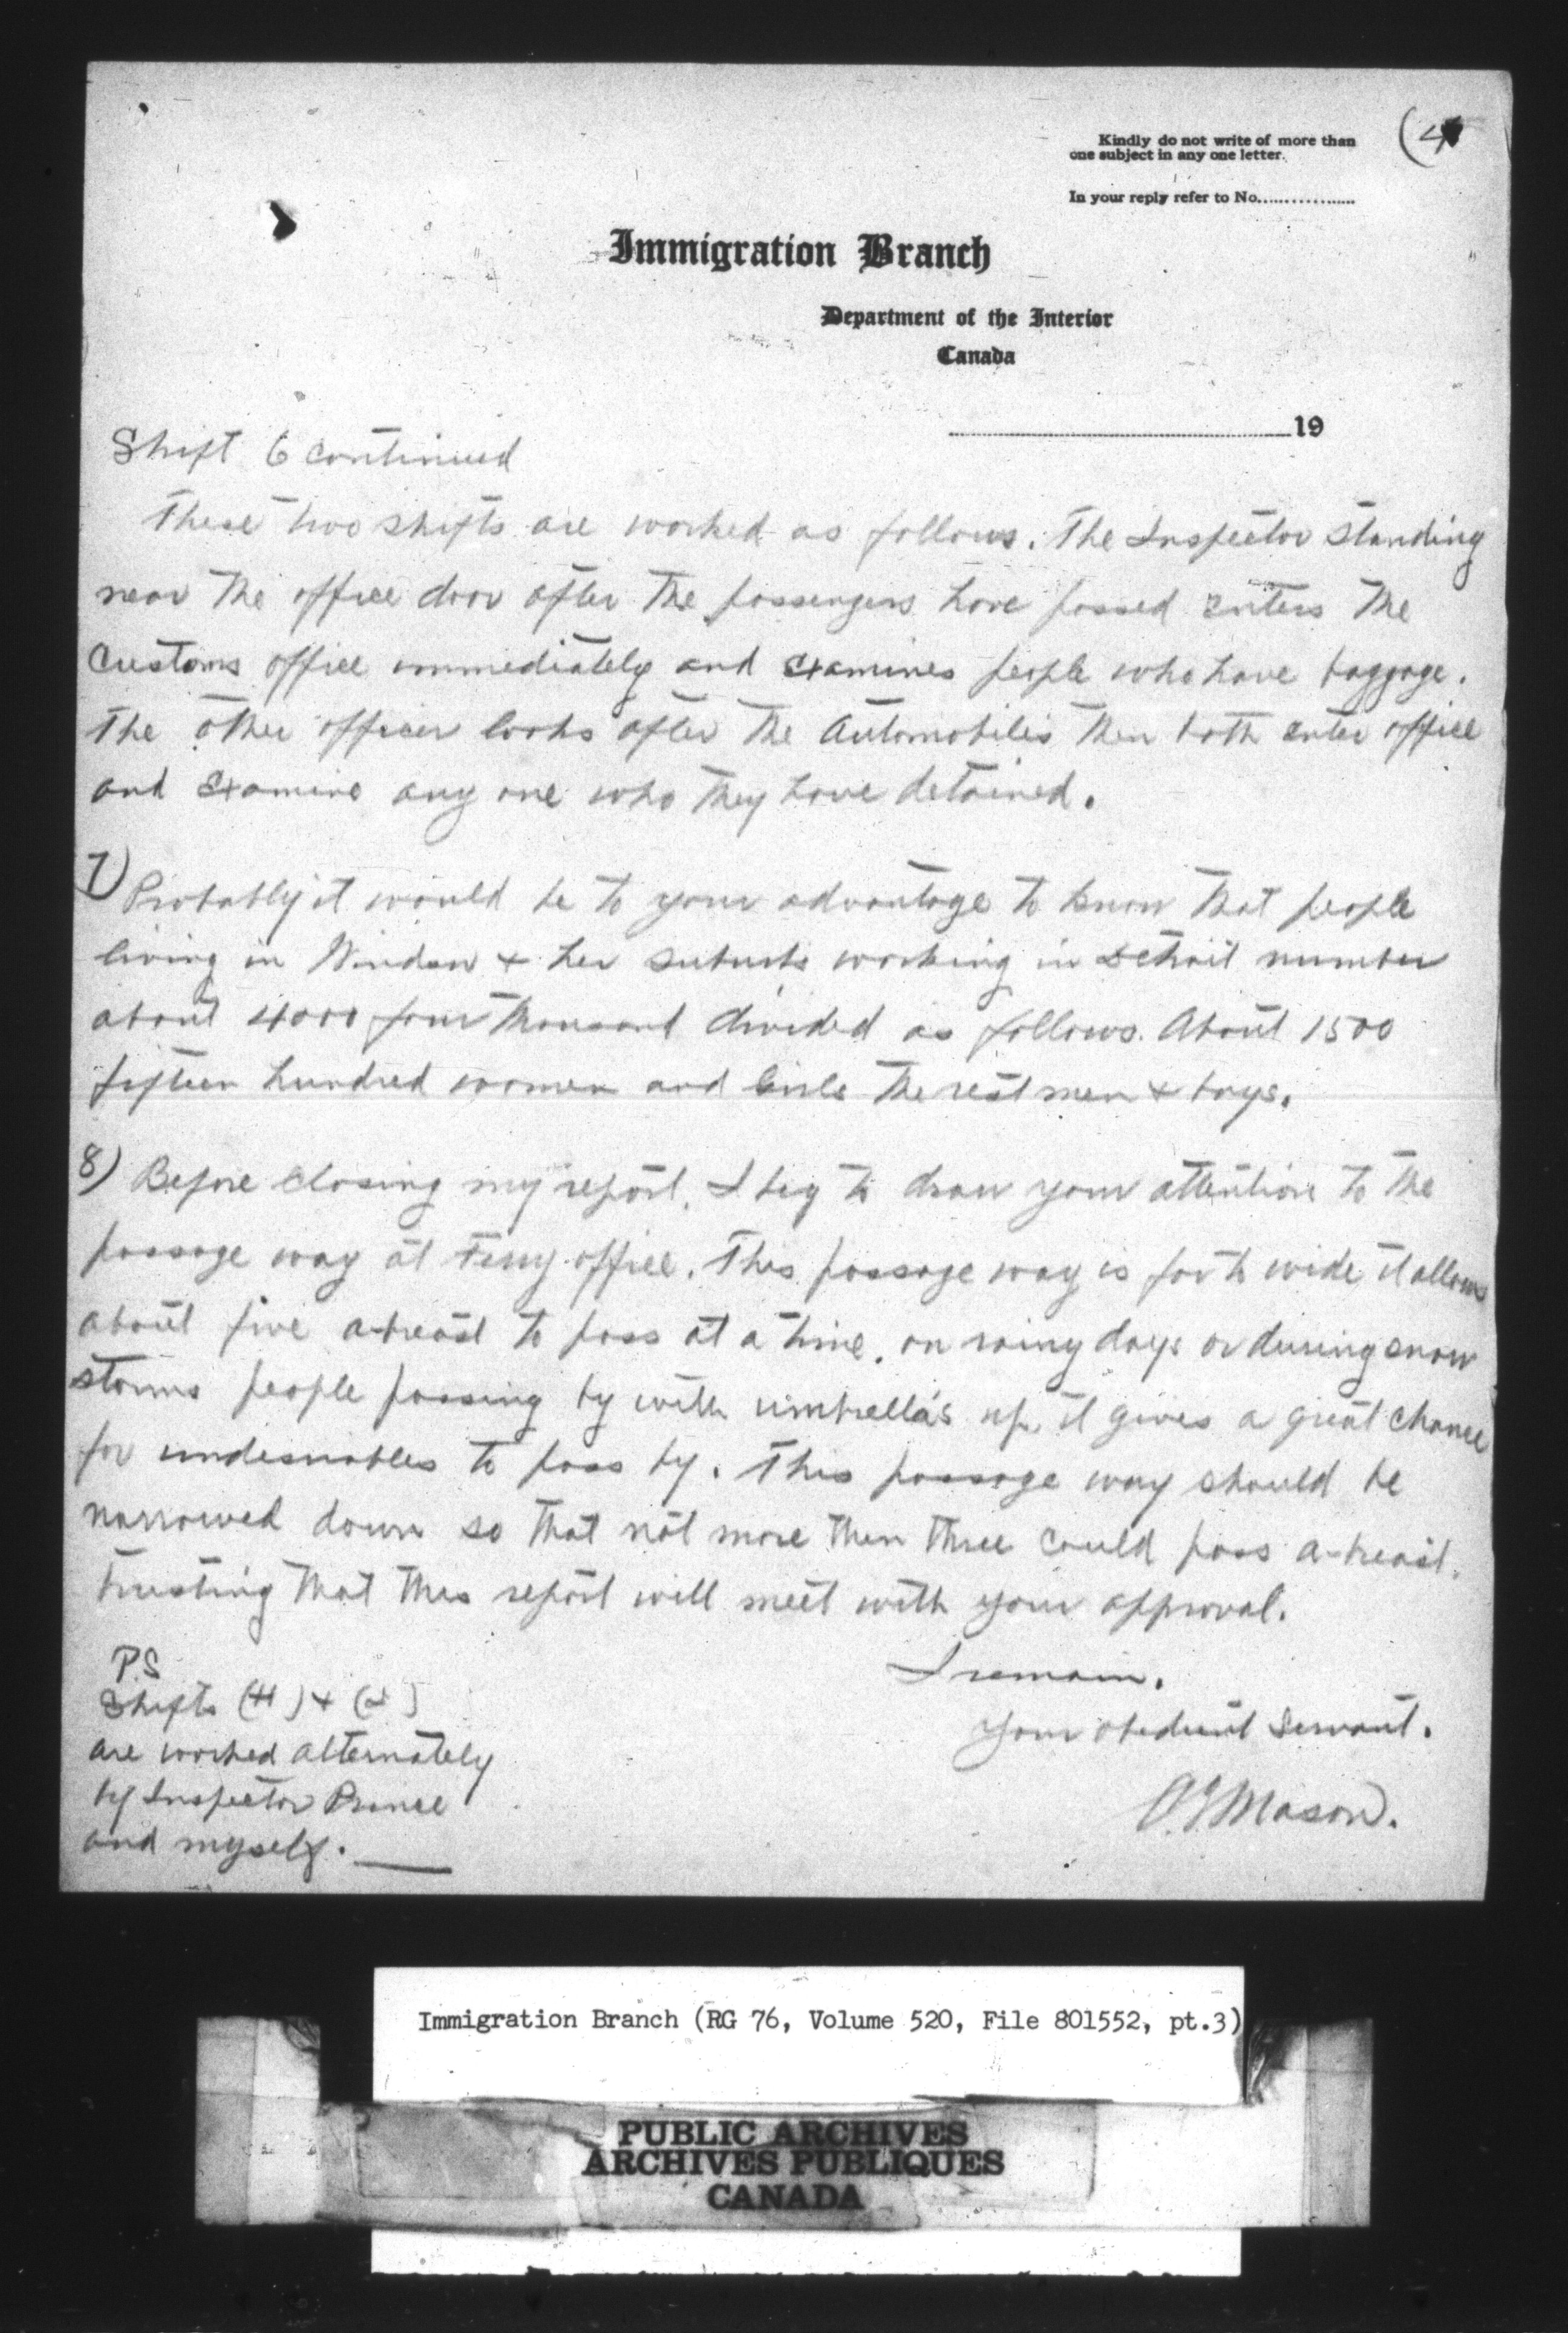 Kindly do not write of more than
one subject in any one letter.
(4
In your reply refer to No..................
Immigration Branch
Department of the Interior
Canada
19
Shift 6 continued
These two shifts are worked as follows. The Inspector standing
near the office door after the passengers have passed enters the
Customs office immediately and examines people who have baggage.
The other officer looks after the Automobiles then both enter office
and examine any one who they have detained.
7) Probably it would be to your advantage to know that people
living in Windsor + her suburbs working in Detroit number
about 4000 four thousand divided as follows. About 1500
fifteen hundred women and Girls the rest men + boys.
8) Before closing my report, I beg to draw your attention to the
passage way at Ferry office. This passage way is wide it allows
about five a-breast to pass at a time. on rainy days or during snow
storms people passing by with umbrella's up, it gives a great chance
for undesirables to pass by. This passage way should be
narrowed down so that not more then three could pass a-breast.
Trusting that this report will meet with your approval.
I remain.
Your obedient Servant.
Mason.
PS
Shifts
are worked alternately
by Inspector Prince
and myself.
Immigration Branch (RG 76, Volume 520, File 801552, pt.3)
PUBLIC ARCHIVES
ARCHIVES PUBLIQUES
CANADA